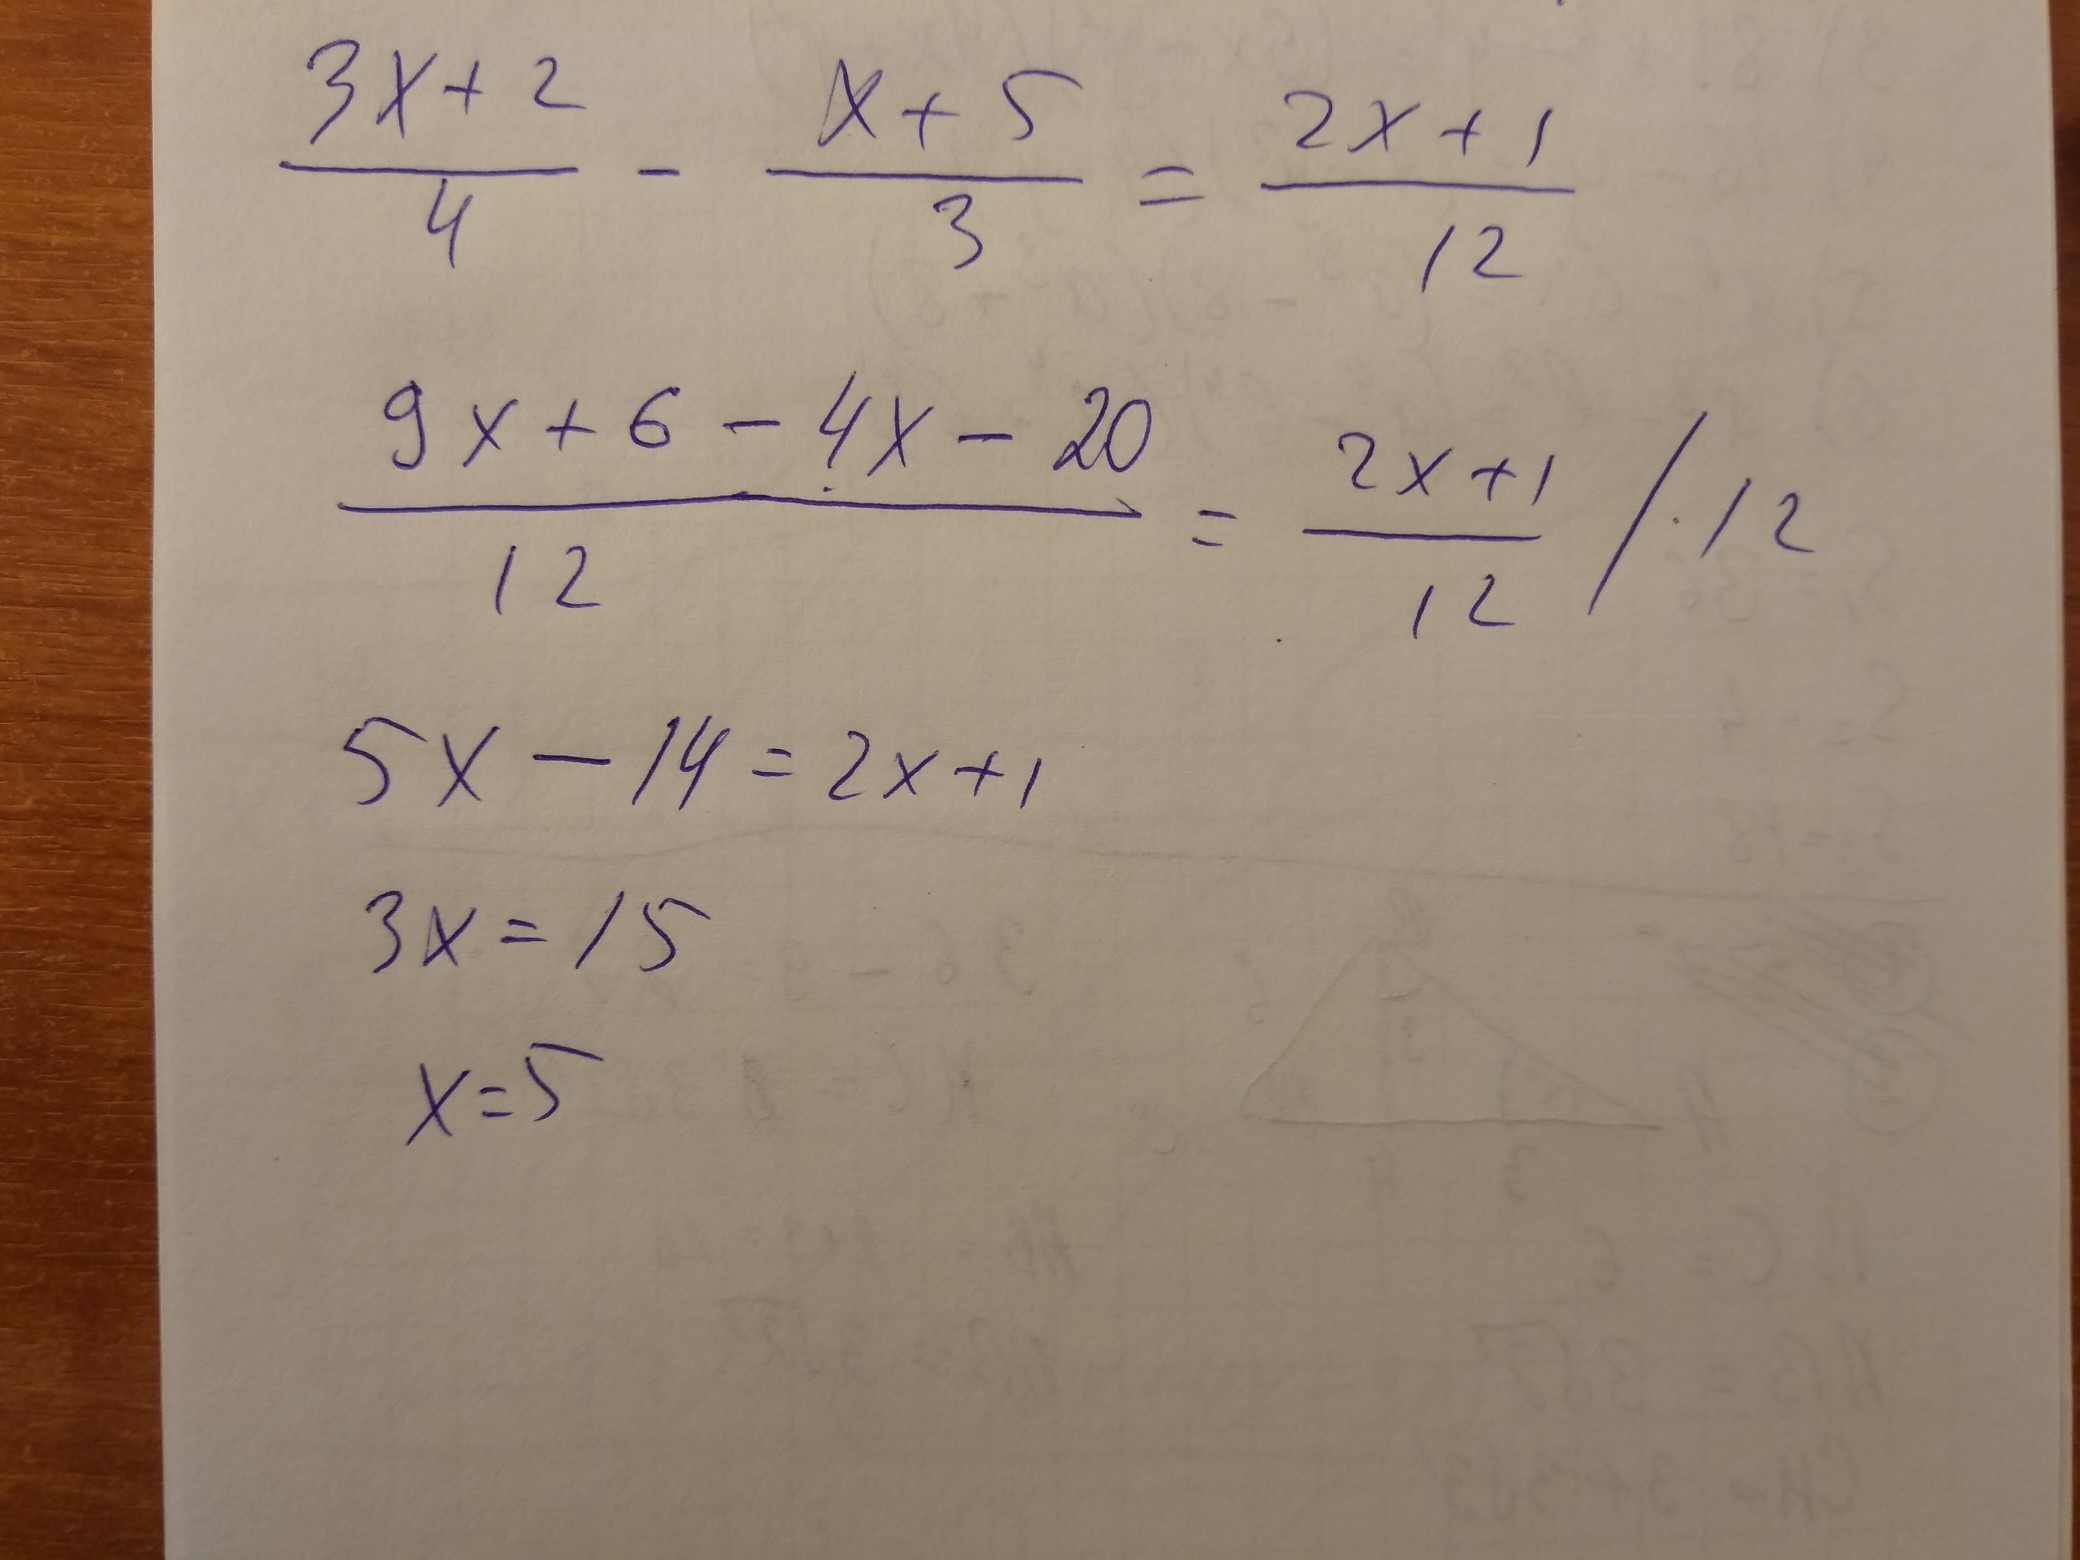 (3x+2)/4 - (x+5)/3 = (2x+1)/12
(9x+6-4x-20)/12 = (2x+1)/12 / ·12
5x-14=2x+1
3x=15
x=5